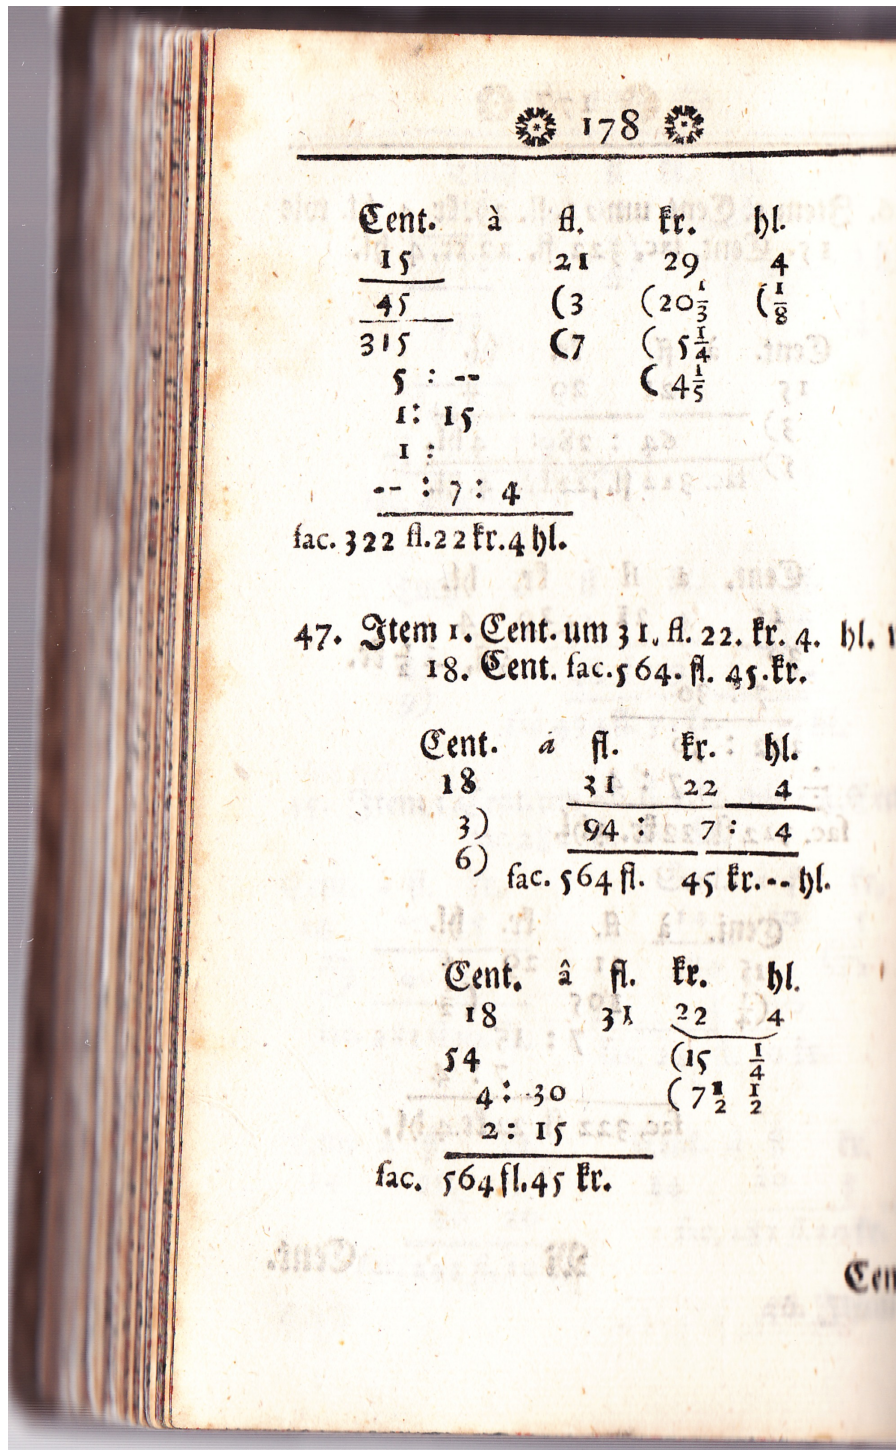 178
Cent. à fl. kr. hl.
15 21 29 4
45 (3 (20 1/3 (1/8
315 (7 (5 1/4
5 : -- (4 1/5
1: 15
1 :
-- : 7 : 4
fac. 322 fl. 22 kr. 4 hl.
47. Item 1. Cent. um 31. fl. 22. kr. 4. hl.
18. Cent. fac. 564. fl. 45. kr.
Cent. á fl. kr. hl.
18 31 22 4
3) 94 : 7 : 4
6)
fac. 564 fl. 45 kr. -- hl.
Cent. â fl. kr. hl.
18 31 22 4
54 (15 1/4
4 : 30 (7 1/2 1/2
2 : 15
fac. 564 fl. 45 kr.
Cen